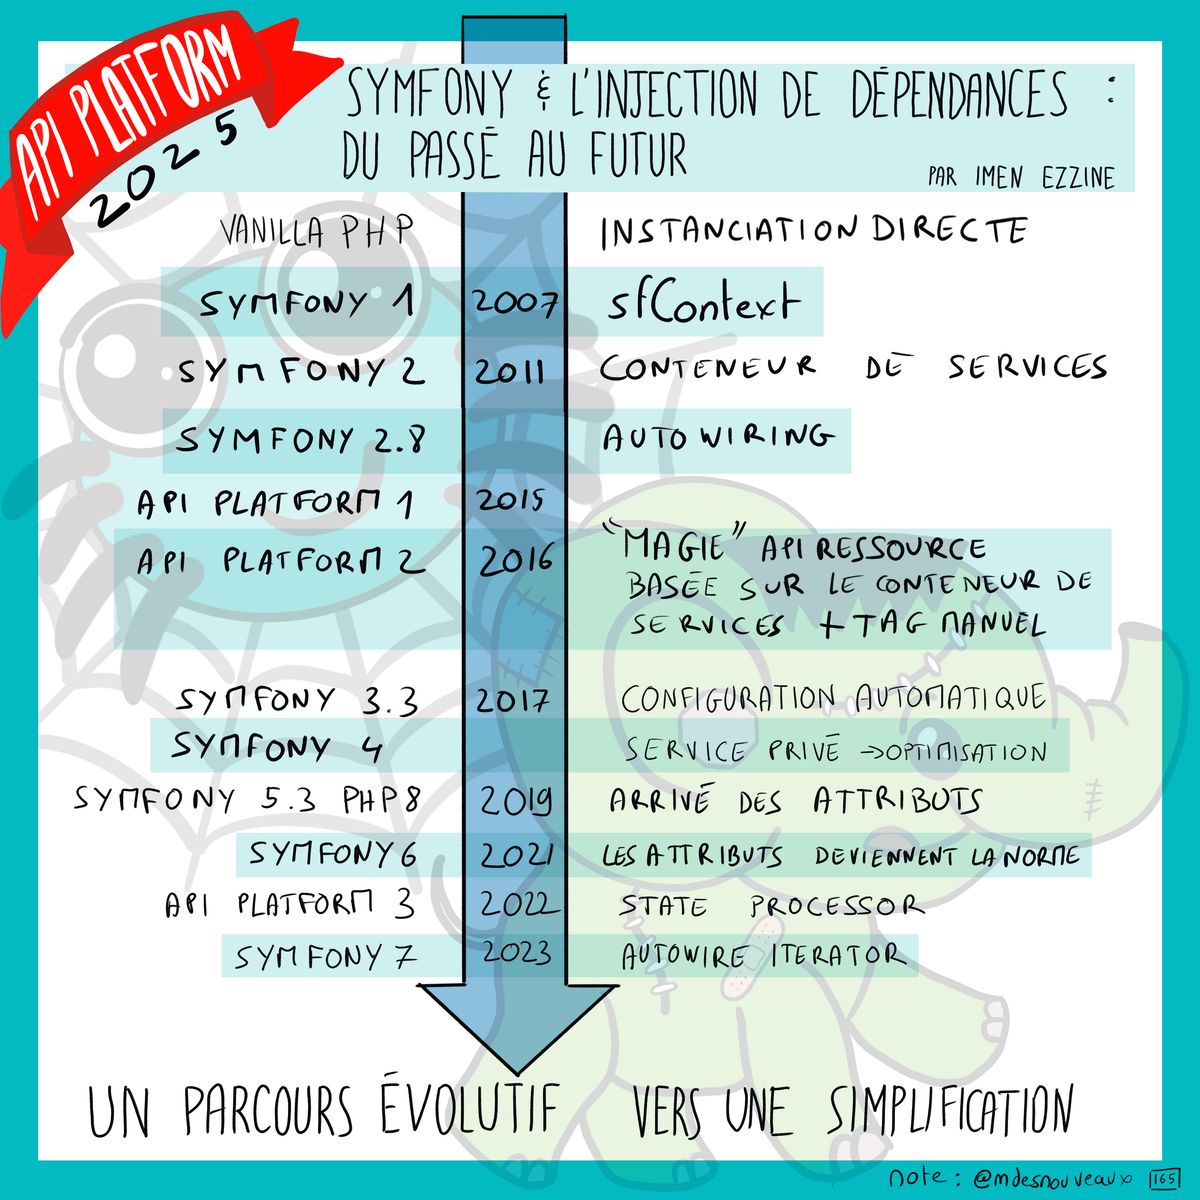 API PLATFORM
2025
SYMFONY & L'INJECTION DE DÉPENDANCES :
DU PASSÉ AU FUTUR
PAR IMEN EZZINE
VANILLA PHP INSTANCIATION DIRECTE
SYMFONY 1 2007 sfContext
SYMFONY 2 2011 CONTENEUR DE SERVICES
SYMFONY 2.8 AUTOWIRING
API PLATFORM 1 2015
API PLATFORM 2 2016 "MAGIE" API RESSOURCE
BASÉE SUR LE CONTENEUR DE
SERVICES + TAG MANUEL
SYMFONY 3.3 2017 CONFIGURATION AUTOMATIQUE
SYMFONY 4 SERVICE PRIVÉ → OPTIMISATION
SYMFONY 5.3 PHP8 2019 ARRIVÉ DES ATTRIBUTS
SYMFONY 6 2021 LES ATTRIBUTS DEVIENNENT LA NORME
API PLATFORM 3 2022 STATE PROCESSOR
SYMFONY 7 2023 AUTOWIRE ITERATOR
UN PARCOURS ÉVOLUTIF VERS UNE SIMPLIFICATION
note : @mdesnouveaux 165